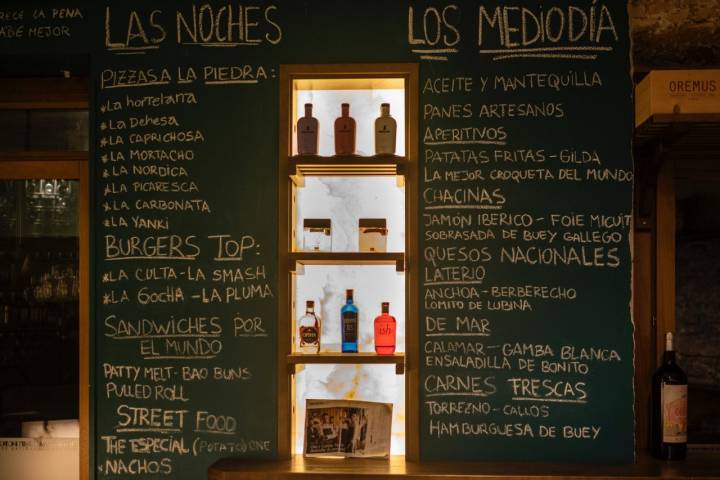 RECE LA PENA
ABE MEJOR
LAS NOCHES
PIZZAS A LA PIEDRA:
*LA hortelana
*LA Dehesa
*LA CAPRICHOSA
*LA MORTACHO
*LA NORDICA
*LA PICARESCA
*LA CARBONATA
*LA YANKI
BURGERS TOP:
*LA CULTA-LA SMASH
*LA GOCHA-LA PLUMA
SANDWICHES POR
EL MUNDO
PATTY MELT-BAO BUNS
PULLED ROLL
STREET FOOD
THE ESPECIAL (POTATO) ONE
*NACHOS
LOS MEDIODÍA
ACEITE Y MANTEQUILLA
PANES ARTESANOS
APERITIVOS
PATATAS FRITAS-GILDA
LA MEJOR CROQUETA DEL MUNDO
CHACINAS
JAMÓN IBERICO-FOIE MICUIT
SOBRASADA DE BUEY GALLEGO
QUESOS NACIONALES
LATERIO
ANCHOA-BERBERECHO
LOMITO DE LUBINA
DE MAR
CALAMAR-GAMBA BLANCA
ENSALADILLA DE BONITO
CARNES FRESCAS
TORREZNO-CALLOS
HAMBURGUESA DE BUEY
OREMUS